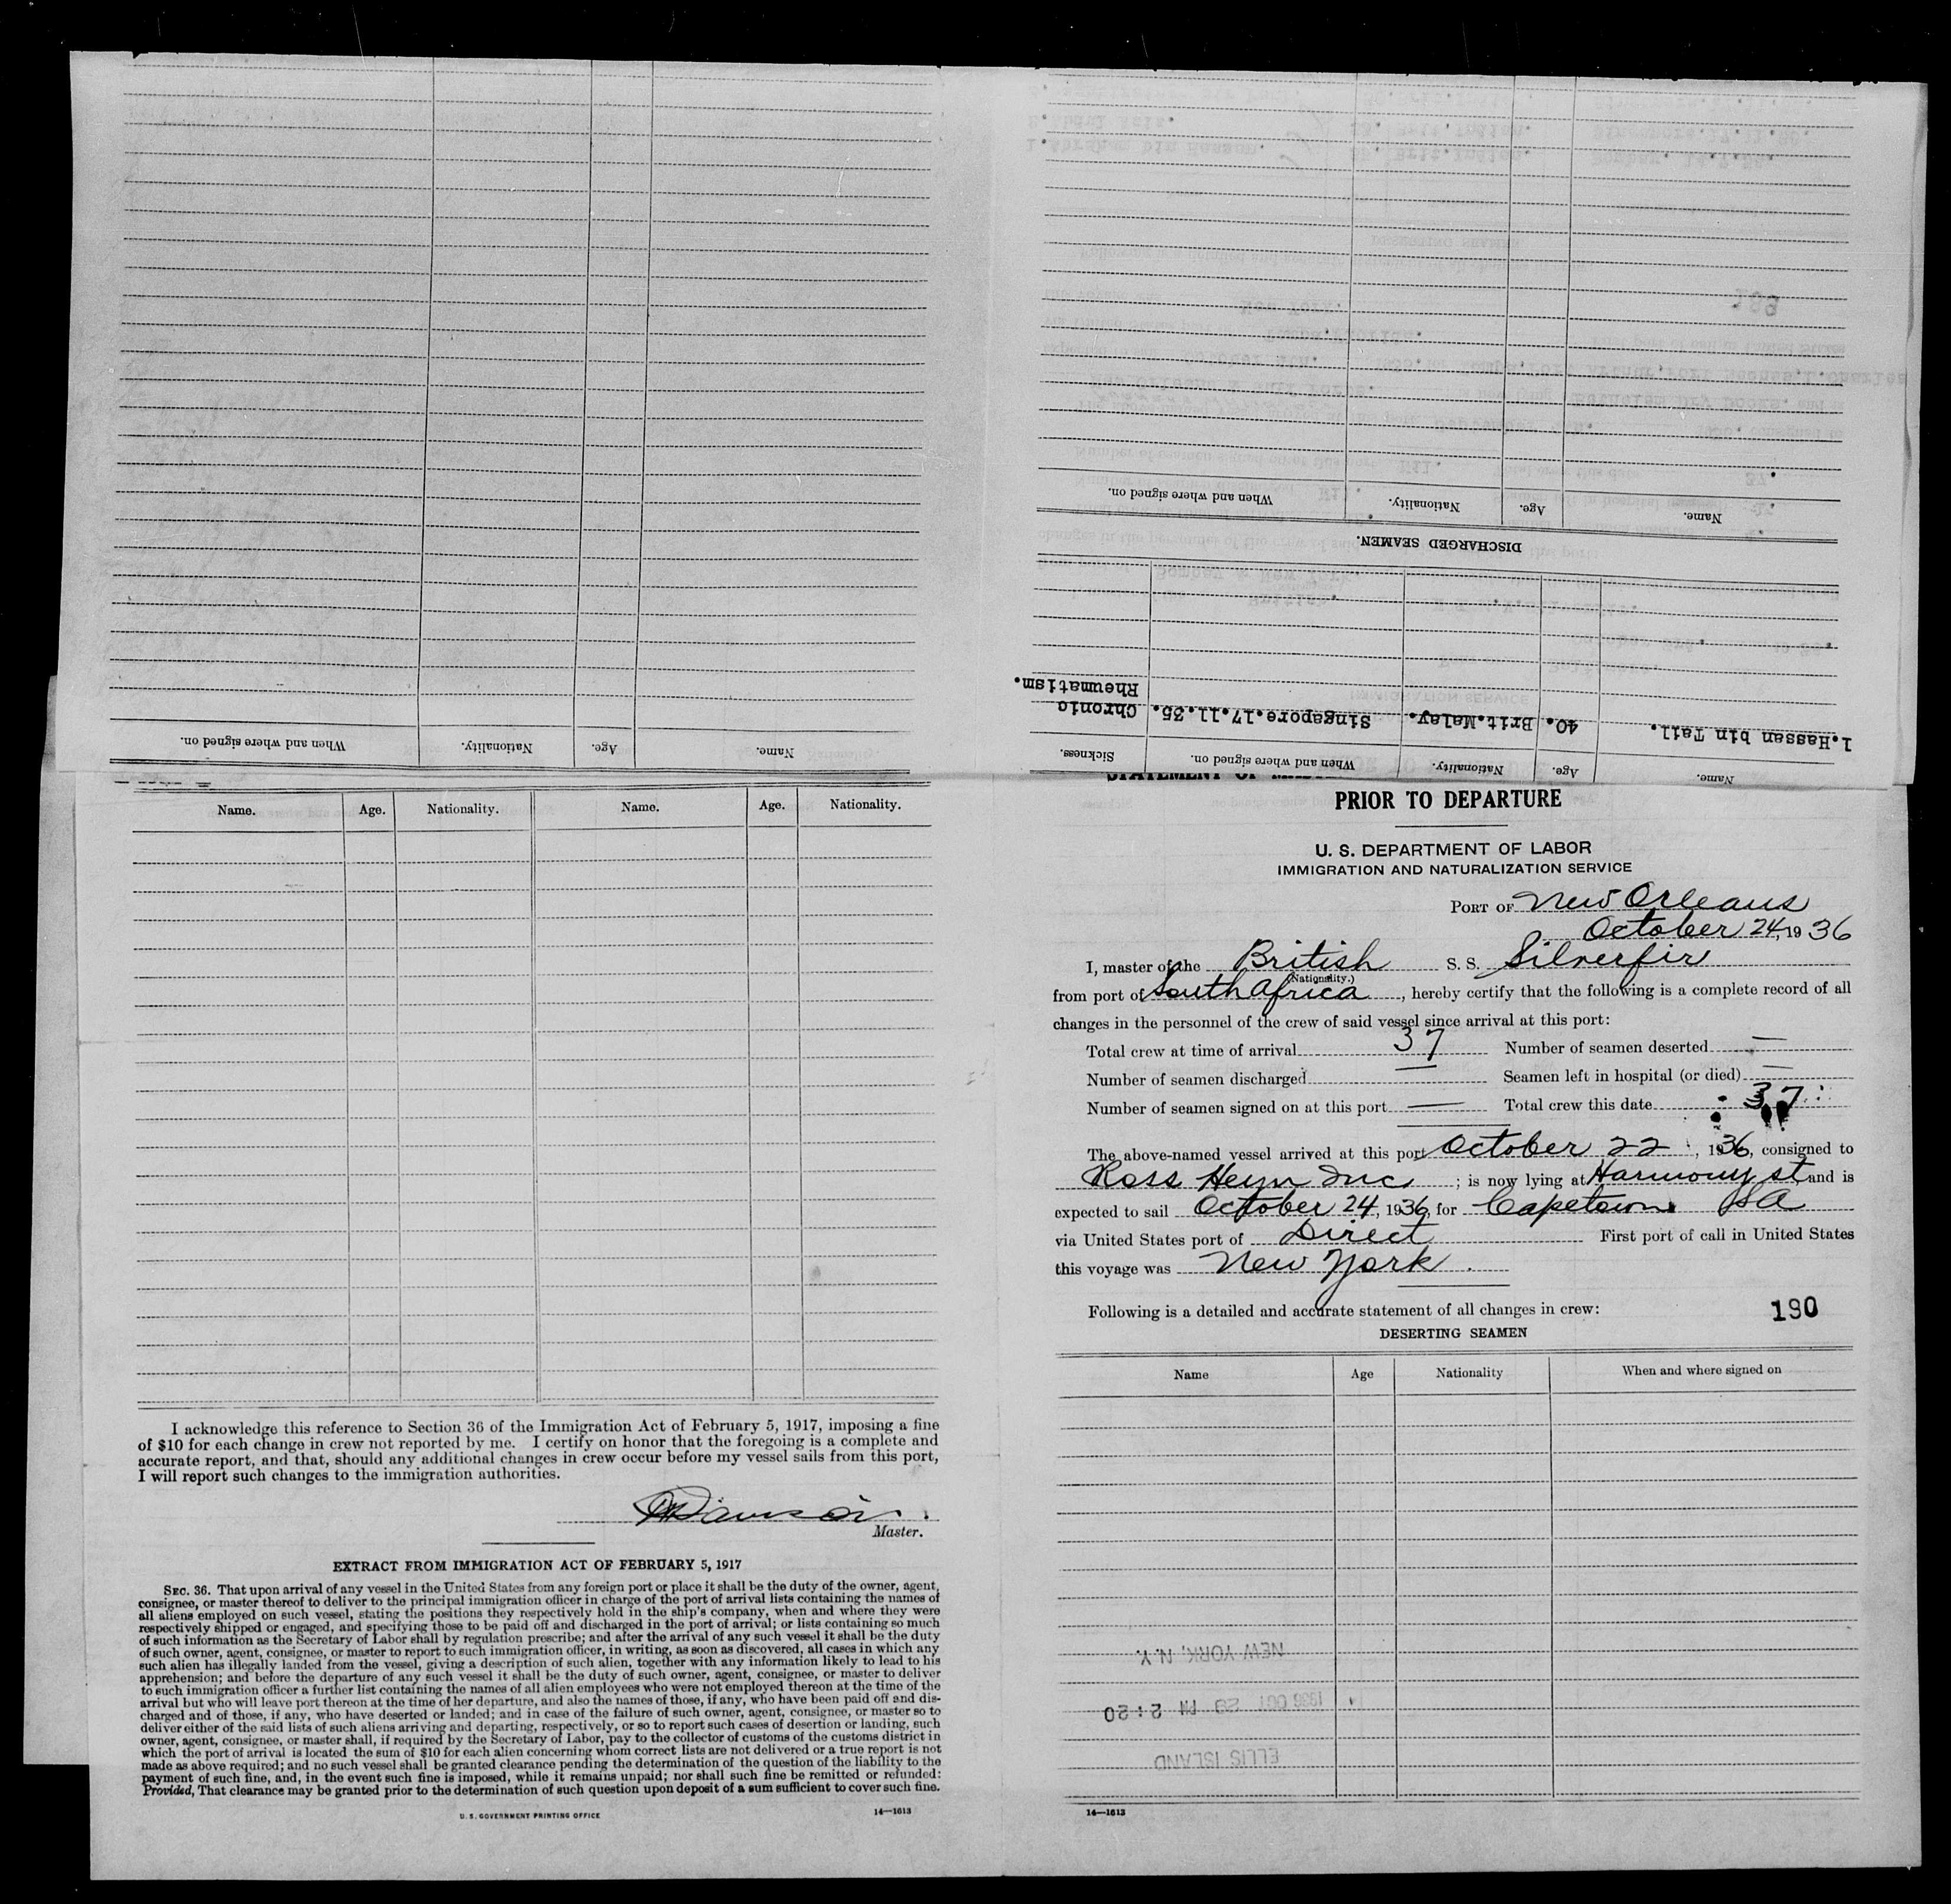 When and where signed on. Nationality. Age. Name.
Name. Age. Nationality. When and where signed on.
DISCHARGED SEAMEN.
Name. Age. Nationality. When and where signed on. Sickness.
1.Hassan bin Tail. 40. Brit.Malay. Singapore.17.11.35. Chronic
Rheumatism.
Name. Age. Nationality. Name. Age. Nationality.
I acknowledge this reference to Section 36 of the Immigration Act of February 5, 1917, imposing a fine
of $10 for each change in crew not reported by me. I certify on honor that the foregoing is a complete and
accurate report, and that, should any additional changes in crew occur before my vessel sails from this port,
I will report such changes to the immigration authorities.
Master.
EXTRACT FROM IMMIGRATION ACT OF FEBRUARY 5, 1917
SEC. 36. That upon arrival of any vessel in the United States from any foreign port or place it shall be the duty of the owner, agent,
consignee, or master thereof to deliver to the principal immigration officer in charge of the port of arrival lists containing the names of
all aliens employed on such vessel, stating the positions they respectively hold in the ship's company, when and where they were
respectively shipped or engaged, and specifying those to be paid off and discharged in the port of arrival; or lists containing so much
of such information as the Secretary of Labor shall by regulation prescribe; and after the arrival of any such vessel it shall be the duty
of such owner, agent, consignee, or master to report to such immigration officer, in writing, as soon as discovered, all cases in which any
such alien has illegally landed from the vessel, giving a description of such alien, together with any information likely to lead to his
apprehension; and before the departure of any such vessel it shall be the duty of such owner, agent, consignee, or master to deliver
to such immigration officer a further list containing the names of all alien employees who were not employed thereon at the time of the
arrival but who will leave port thereon at the time of her departure, and also the names of those, if any, who have been paid off and dis-
charged and of those, if any, who have deserted or landed; and in case of the failure of such owner, agent, consignee, or master so to
deliver either of the said lists of such aliens arriving and departing, respectively, or so to report such cases of desertion or landing, such
owner, agent, consignee, or master shall, if required by the Secretary of Labor, pay to the collector of customs of the customs district in
which the port of arrival is located the sum of $10 for each alien concerning whom correct lists are not delivered or a true report is not
made as above required; and no such vessel shall be granted clearance pending the determination of the question of the liability to the
payment of such fine, and, in the event such fine is imposed, while it remains unpaid; nor shall such fine be remitted or refunded:
Provided, That clearance may be granted prior to the determination of such question upon deposit of a sum sufficient to cover such fine.
U. S. GOVERNMENT PRINTING OFFICE 14—1613
PRIOR TO DEPARTURE
U. S. DEPARTMENT OF LABOR
IMMIGRATION AND NATURALIZATION SERVICE
PORT OF New Orleans
October 24, 1936
I, master of the British S. S. Silverfir
(Nationality.)
from port of South Africa, hereby certify that the following is a complete record of all
changes in the personnel of the crew of said vessel since arrival at this port:
Total crew at time of arrival 37 Number of seamen deserted —
Number of seamen discharged — Seamen left in hospital (or died) —
Number of seamen signed on at this port — Total crew this date 37
The above-named vessel arrived at this port October 22, 1936, consigned to
Ross Heyn Inc; is now lying at Harmony st and is
expected to sail October 24, 1936, for Capetown SA
via United States port of Direct First port of call in United States
this voyage was New York.
Following is a detailed and accurate statement of all changes in crew: 190
DESERTING SEAMEN
Name Age Nationality When and where signed on
NEW YORK, N.Y.
1936 OCT 29 PM 2:20
ELLIS ISLAND
14—1613